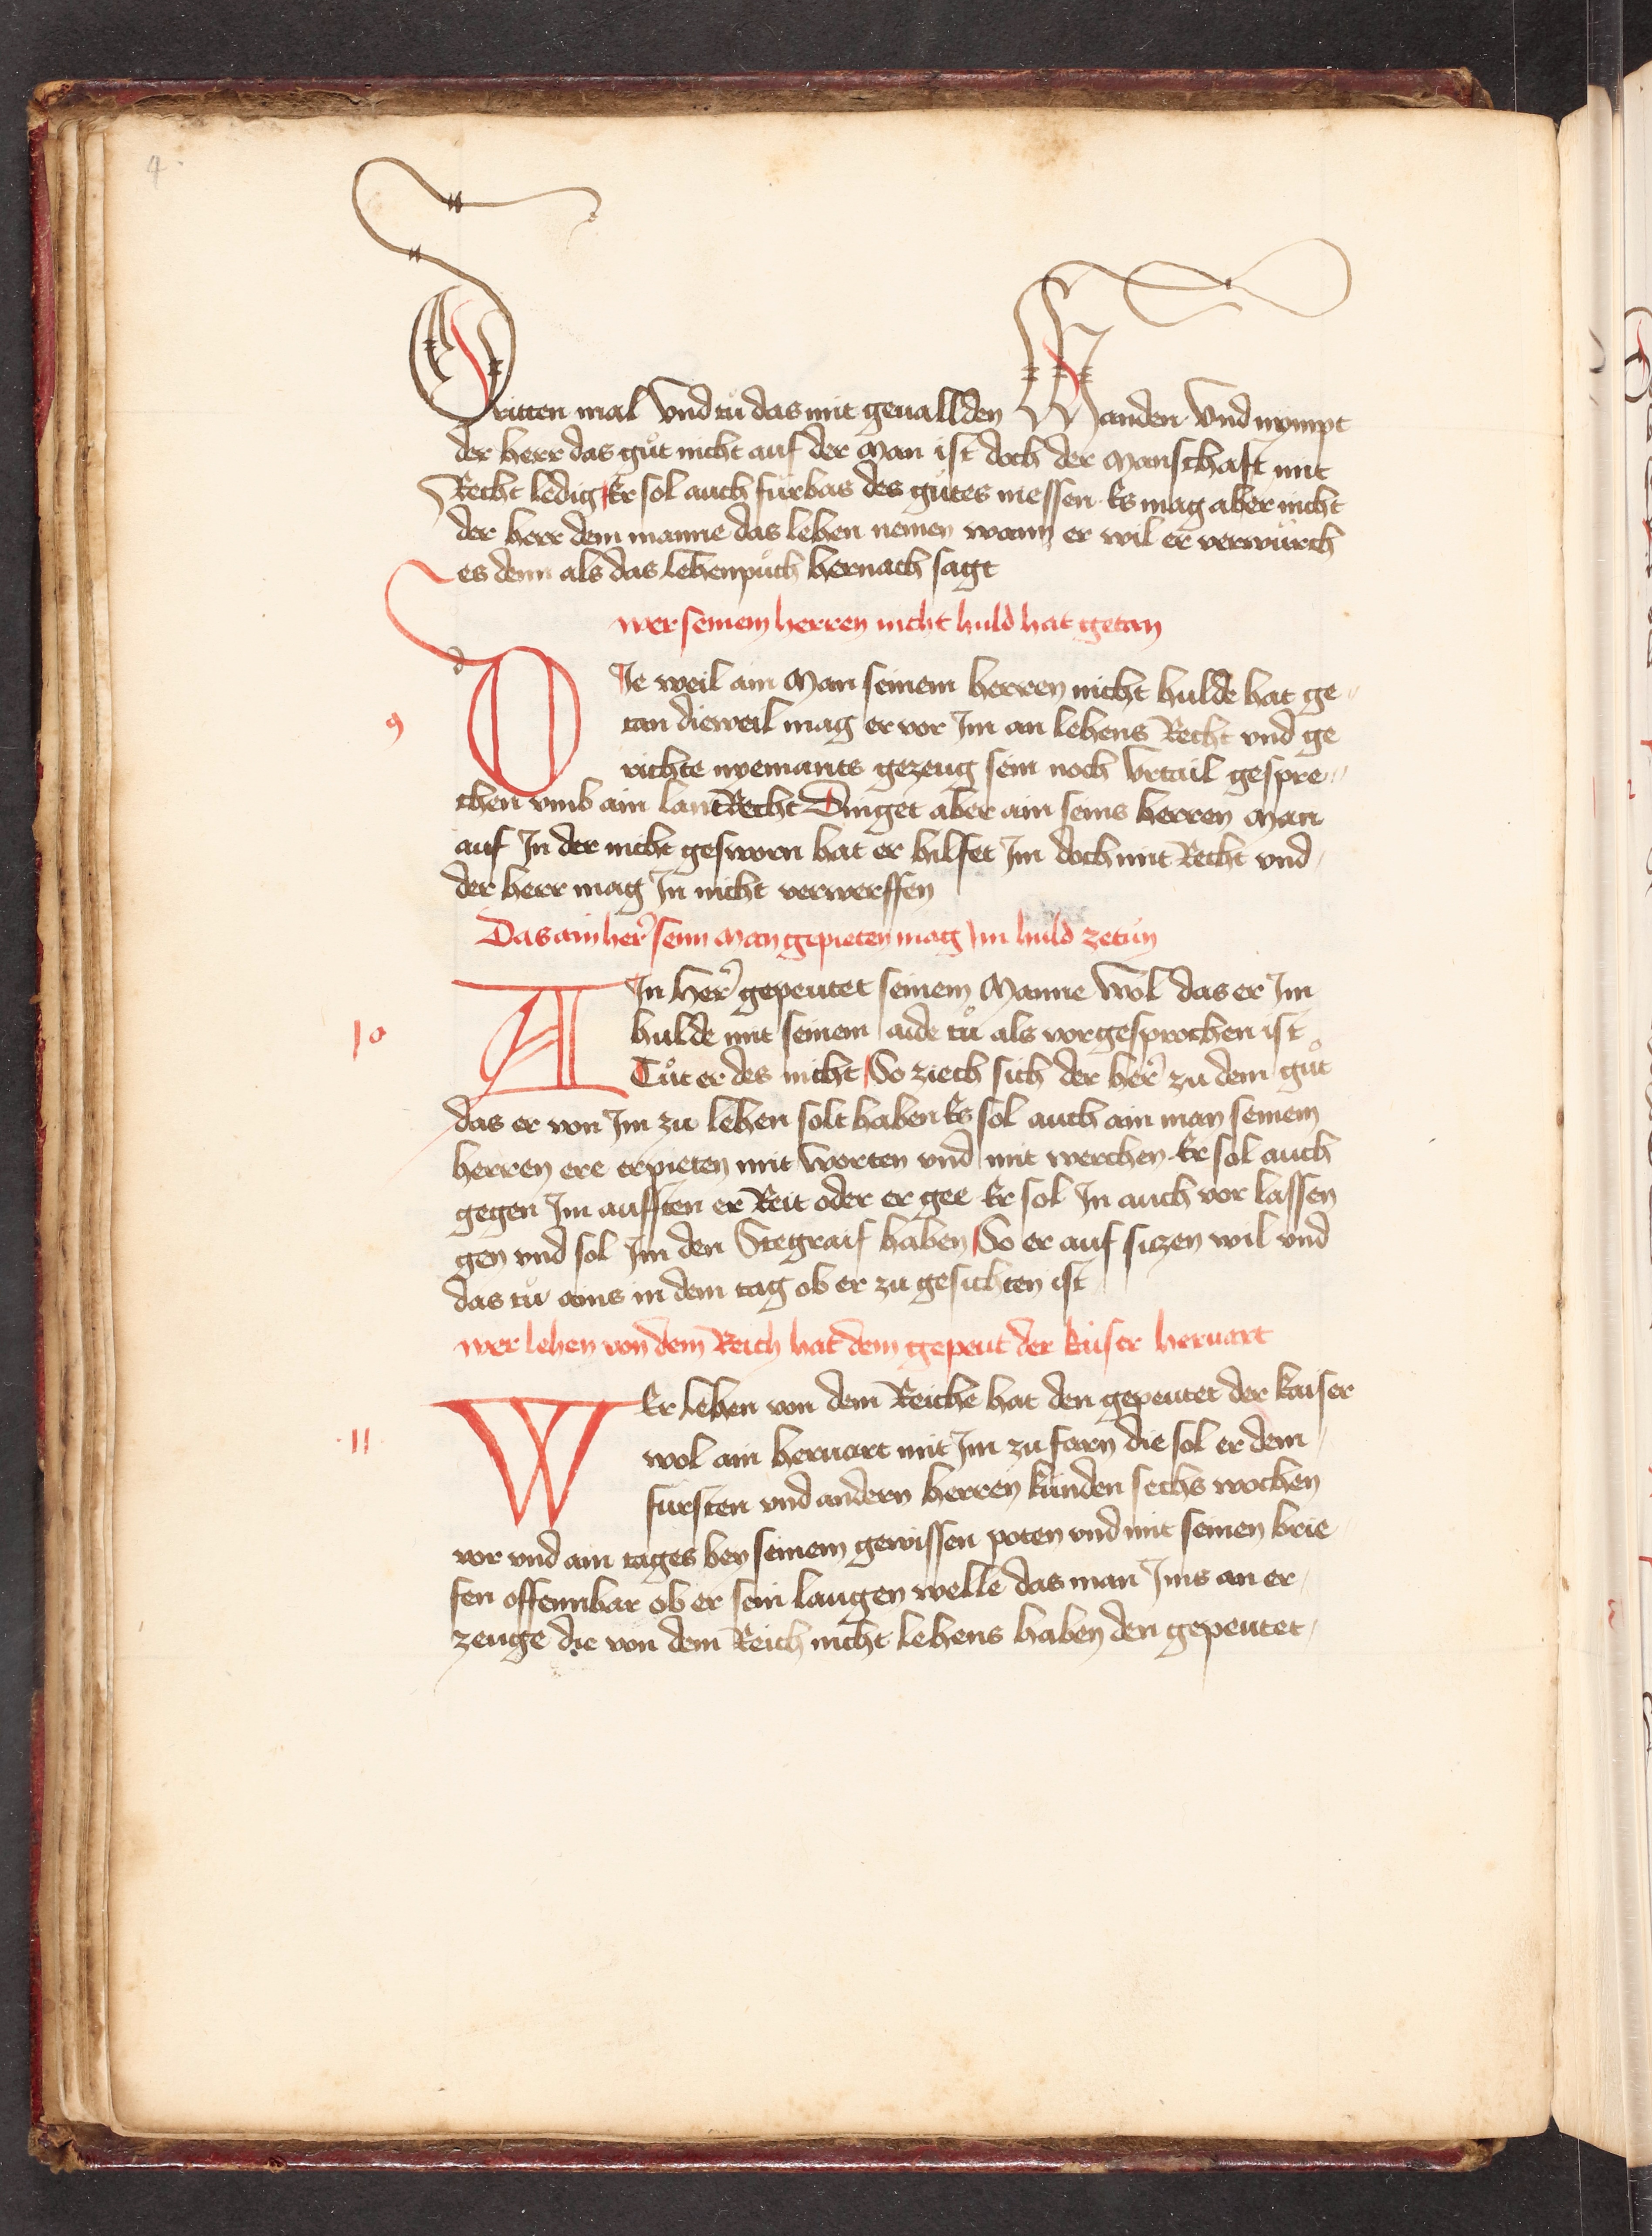 4
Dritten mal Vnd tů das mit geuallden Handen Vnd nympt
der herr das gůt nicht auf der Man ist doch der Manschaft mit
Recht ledig Er sol auch fürbas des gůtes niessen Es mag aber nicht
der herr dem manne das lehen nemen wann er wil er verwürch
es denn als das lehenpůch hernach sagt
wer seinem herren nicht huld hat getan
9
DJe weil ain Man seinem herren nicht hulde hat ge
tan dieweil mag er vor Jm an lehens Recht vnd ge
richte nyemants gezeug sein noch Vrtail gespre
chen vmb ain lantRecht Dinget aber ain seins herren Man
auf Jn der nicht gesworn hat er hilfet Jm doch mit Recht vnd
der herr mag Jn nicht verwerffen
Das ain her seinn Man gepieten mag Jm huld zetůn
10
AJn Her gepeutet seinem Manne Wol das er Jm
hulde mit seinem aide tů als vorgesprochen ist
Tůt er des nicht So ziech sich der her zu dem gůt
das er von Jm zu lehen solt haben Es sol auch ain man seinem
herren ere erpieten mit Worten vnd mit werchen Er sol auch
gegen Jm aufften er Reit oder er gee Er sol Jn auch vor lassen
gen vnd sol Jm den Stegraif haben So er auf sizen wil vnd
das tů ains in dem tag ob er zu gesichten ist
wer lehen von dem Reich hat dem gepeut der kaiser heruart
11
WEr lehen von dem Reiche hat den gepeutet der kaiser
wol ain heruart mit Jm zu farn die sol er dem
fürsten vnd andern herren künden sechs wochen
vor vnd ain tages bey seinem gewissen poten vnd mit seinen brie
fen offennbar ob er sein laugen welle das man Jms an er
zeuge die von dem Reich nicht lehens haben den gepeutet